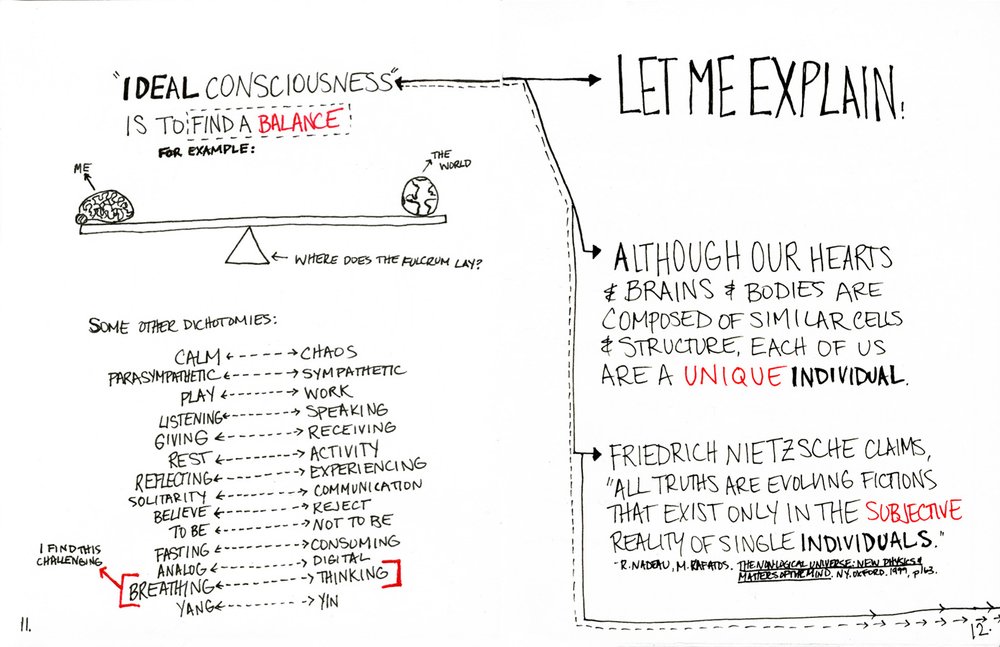 "IDEAL CONSCIOUSNESS"
IS TO FIND A BALANCE
FOR EXAMPLE:
ME
THE
WORLD
WHERE DOES THE FULCRUM LAY?
SOME OTHER DICHOTOMIES:
CALM CHAOS
PARASYMPATHETIC SYMPATHETIC
PLAY WORK
LISTENING SPEAKING
GIVING RECEIVING
REST ACTIVITY
REFLECTING EXPERIENCING
SOLITARITY COMMUNICATION
BELIEVE REJECT
TO BE NOT TO BE
FASTING CONSUMING
ANALOG DIGITAL
BREATHING THINKING
YANG YIN
I FIND THIS
CHALLENGING
11.
LET ME EXPLAIN:
ALTHOUGH OUR HEARTS
& BRAINS & BODIES ARE
COMPOSED OF SIMILAR CELLS
& STRUCTURE, EACH OF US
ARE A UNIQUE INDIVIDUAL.
FRIEDRICH NIETZSCHE CLAIMS,
"ALL TRUTHS ARE EVOLVING FICTIONS
THAT EXIST ONLY IN THE SUBJECTIVE
REALITY OF SINGLE INDIVIDUALS."
- R. NADEAU, M. KAFATOS. THE NONLOGICAL UNIVERSE: NEW PHYSICS &
MATTERS OF THE MIND. N.Y. OXFORD. 1999, p163.
12.